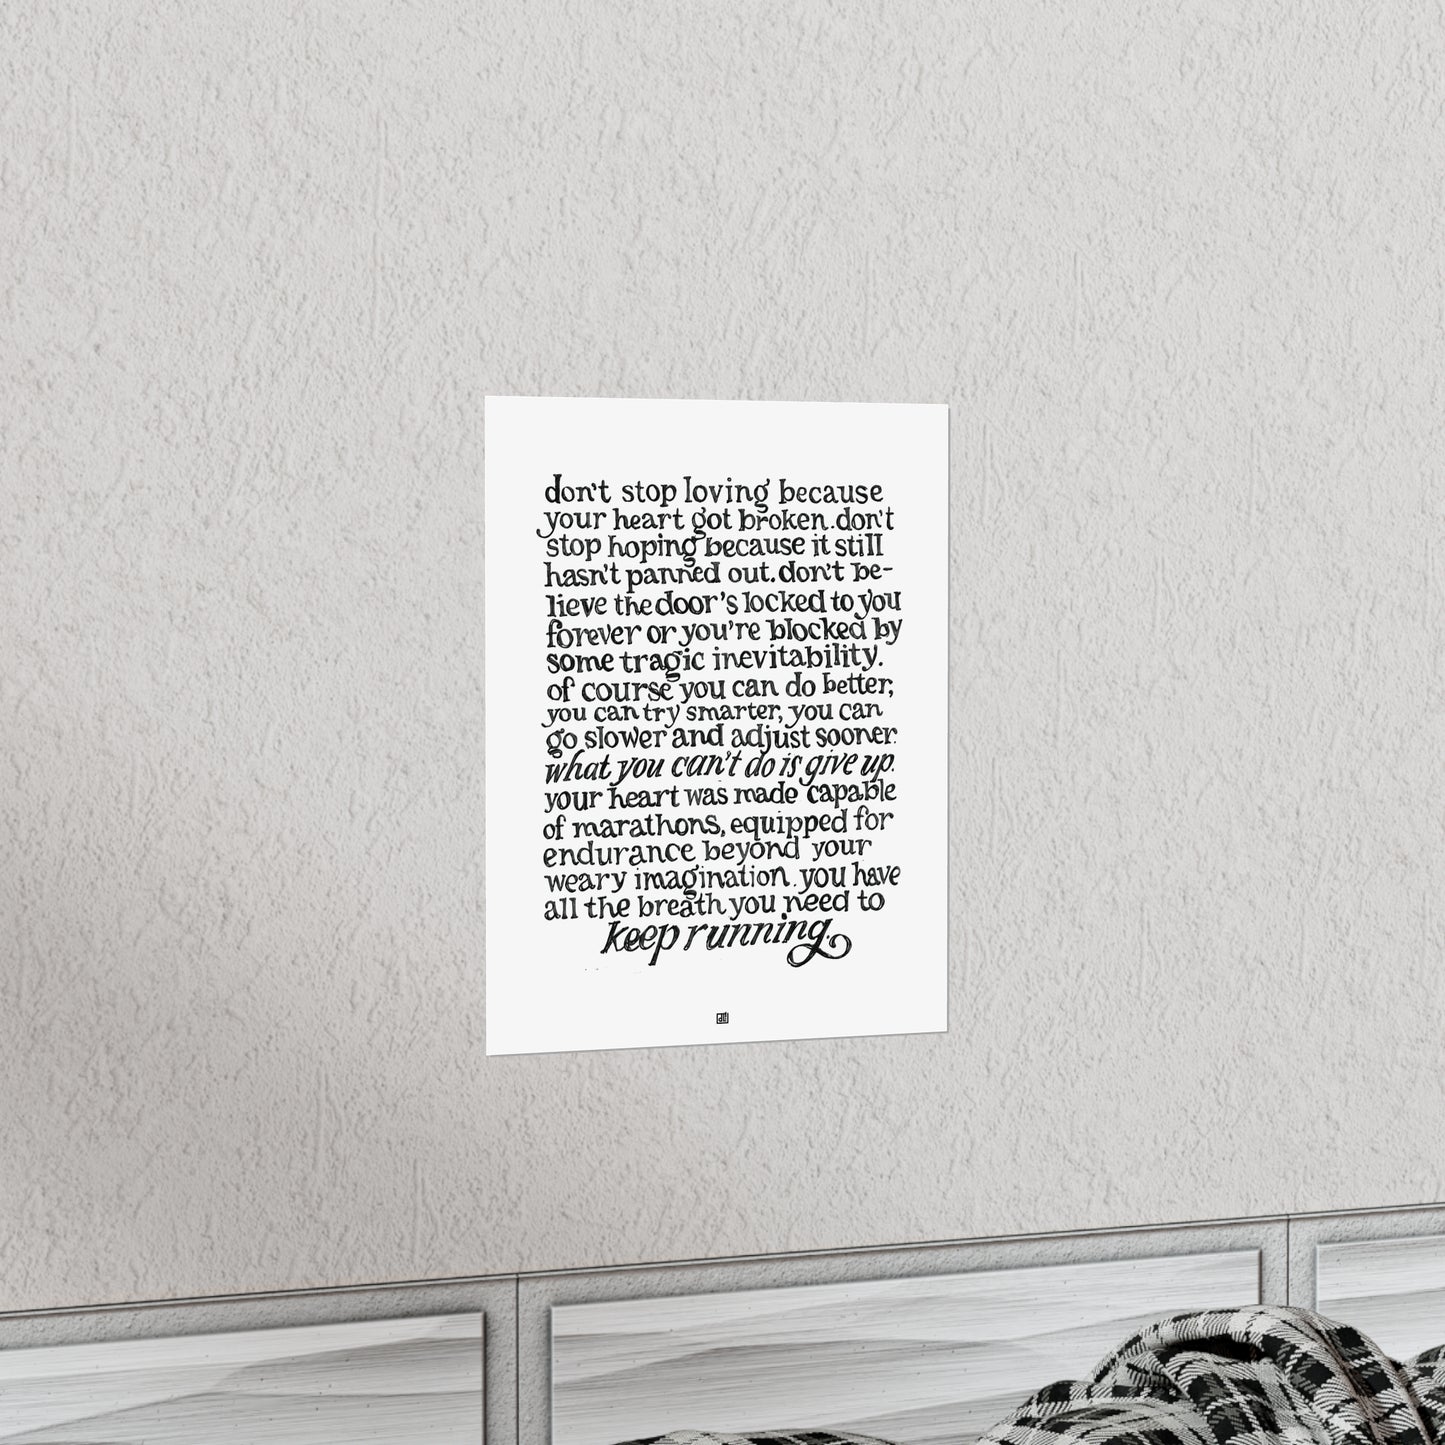 don't stop loving because
your heart got broken. don't
stop hoping because it still
hasn't panned out. don't be-
lieve the door's locked to you
forever or you're blocked by
some tragic inevitability.
of course you can do better,
you can try smarter, you can
go slower and adjust sooner.
what you can't do is give up.
your heart was made capable
of marathons, equipped for
endurance beyond your
weary imagination. you have
all the breath you need to
keep running.